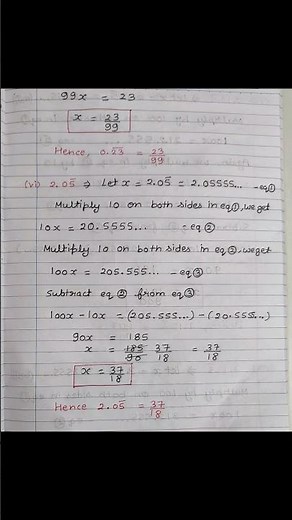 99x = 23
x = 23/99
Hence, 0.2̅3̅ = 23/99
(vi) 2.05̅ ⇒ Let x = 2.05̅ = 2.05555... - eq①
Multiply 10 on both sides in eq①, we get
10x = 20.5555... - eq②
Multiply 10 on both sides in eq②, we get
100x = 205.555... - eq③
Subtract eq② from eq③
100x - 10x = (205.555...) - (20.555...)
90x = 185
x = 185/90 37/18 = 37/18
x = 37/18
Hence 2.05̅ = 37/18